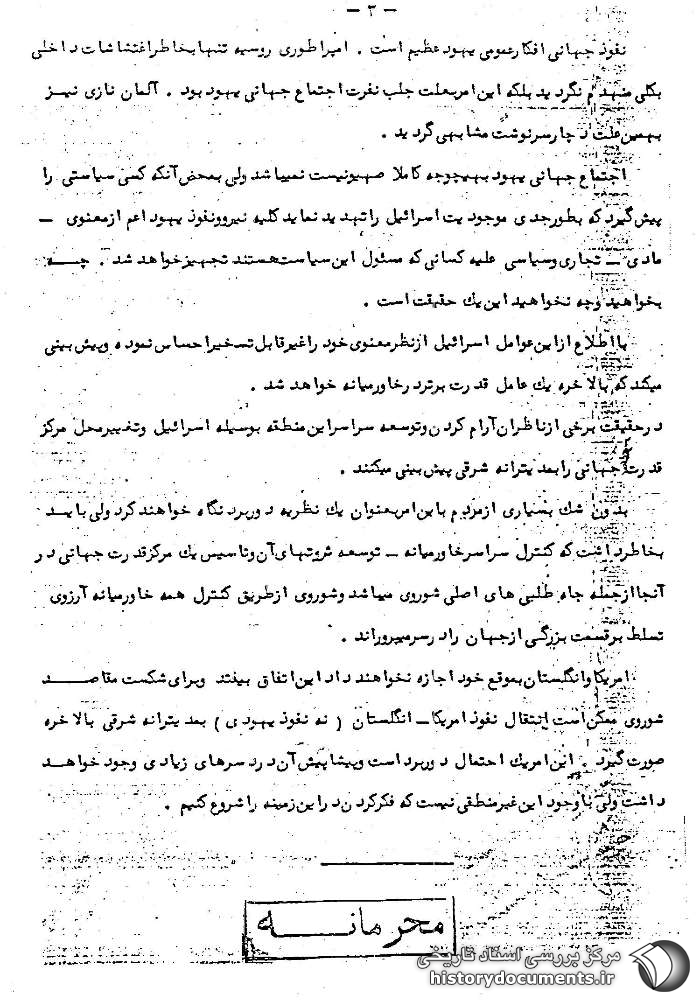 - ۳ -
نفوذ جهانی افکار عمومی یهود عظیم است . امپراطوری روسیه تنها بخاطر اغتشاشات داخلی
بکلی منهدم نگردید بلکه این امر بعلت جلب نفرت اجتماع جهانی یهود بود . آلمان نازی نیز
بهمین علت دچار سرنوشت مشابهی گردید .
اجتماع جهانی یهود بهیچوجه کاملا صهیونیست نمیباشد ولی بمحض آنکه کسی سیاستی را
پیش گیرد که بطور جدی موجودیت اسرائیل را تهدید نماید کلیه نیرو و نفوذ یهود اعم از معنوی -
مادی - تجاری و سیاسی علیه کسانی که مسئول این سیاست هستند تجهیز خواهد شد . چه
بخواهید و چه نخواهید این یك حقیقت است .
با اطلاع از این عوامل اسرائیل از نظر معنوی خود را غیر قابل تسخیر احساس نموده و پیش بینی
میکند که بالاخره یك عامل قدرت برتر در خاورمیانه خواهد شد .
در حقیقت برخی از ناظران آرام کردن و توسعه سراسر این منطقه بوسیله اسرائیل و تغییر محل مرکز
قدرت جهانی را بمدیترانه شرقی پیش بینی میکنند .
بدون شك بسیاری از مردم باین امر بعنوان یك نظریه دور برد نگاه خواهند کرد ولی باید
بخاطر داشت که کنترل سراسر خاورمیانه - توسعه ثروتهای آن و تاسیس یك مرکز قدرت جهانی در
آنجا از جمله جاه طلبی های اصلی شوروی میباشد و شوروی از طریق کنترل همه خاورمیانه آرزوی
تسلط بر قسمت بزرگی از جهان را در سر میپروراند .
امریکا و انگلستان بموقع خود اجازه نخواهند داد این اتفاق بیفتد و برای شکست مقاصد
شوروی ممکن است انتقال نفوذ امریکا - انگلستان ( نه نفوذ یهودی ) بمدیترانه شرقی بالاخره
صورت گیرد . این امر یك احتمال دور برد است و پیشاپیش آن دردسرهای زیادی وجود خواهد
داشت ولی با وجود این غیر منطقی نیست که فکر کردن در این زمینه را شروع کنیم .
محرمانه
مرکز بررسی اسناد تاریخی
historydocuments.ir